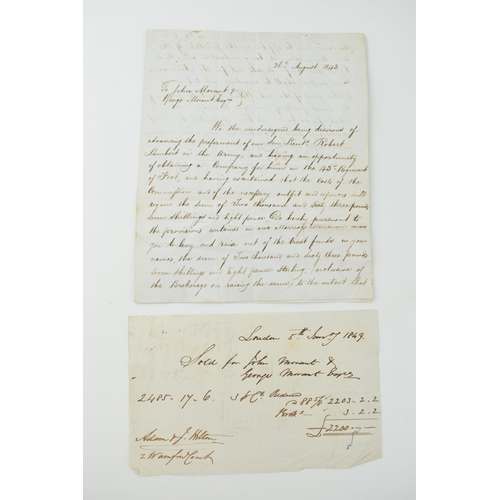 26th August 1843
To John Morant &
George Morant Esqrs
We the undersigned being desirous of
advancing the preferment of our son Lieutt Robert
Lambert in the Army, and having an opportunity
of obtaining a Company for him in the 43d Regiment
of Foot, and having ascertained that the Costs of the
Commission and of the necessary outfit and expences will
require the sum of Two thousand and sixty three pounds
seven shillings and eight pence Do hereby pursuant to
the provisions contained in our Marriage Settlement
you to levy and raise out of the trust funds in your
names, the sum of Two thousand and sixty three pounds
seven shillings and eight pence sterling (inclusive of
the Brokerage on raising the same) to the intent that
London 5th Jany 1849
Sold for John Morant &
George Morant Esqrs
2485-17-6. 3 P Ct Reduced
@ 88 5/8 2203-2-2
3-2-2
£2200
Adam & J.
2 Warnford Court